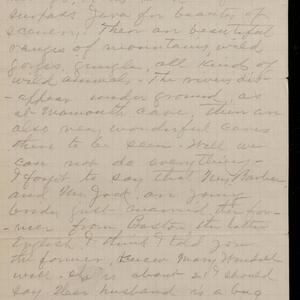 surpass Java for beauty of
scenery. There are beautiful
ranges of mountains, wild
gorges, jungle, all kinds of
wild animals. The rivers dis-
-appear under ground, as
at Mammoth Cave, there are
also very wonderful caves
there to be seen. Well we
can not do everything -
I forgot to say that Mrs. Barber,
and Van Jack are young
just married, the for-
-mer from Boston the latter
English I think I told you
the former, knew Mary
well. She is about 21 I should
say. Her husband is a bug